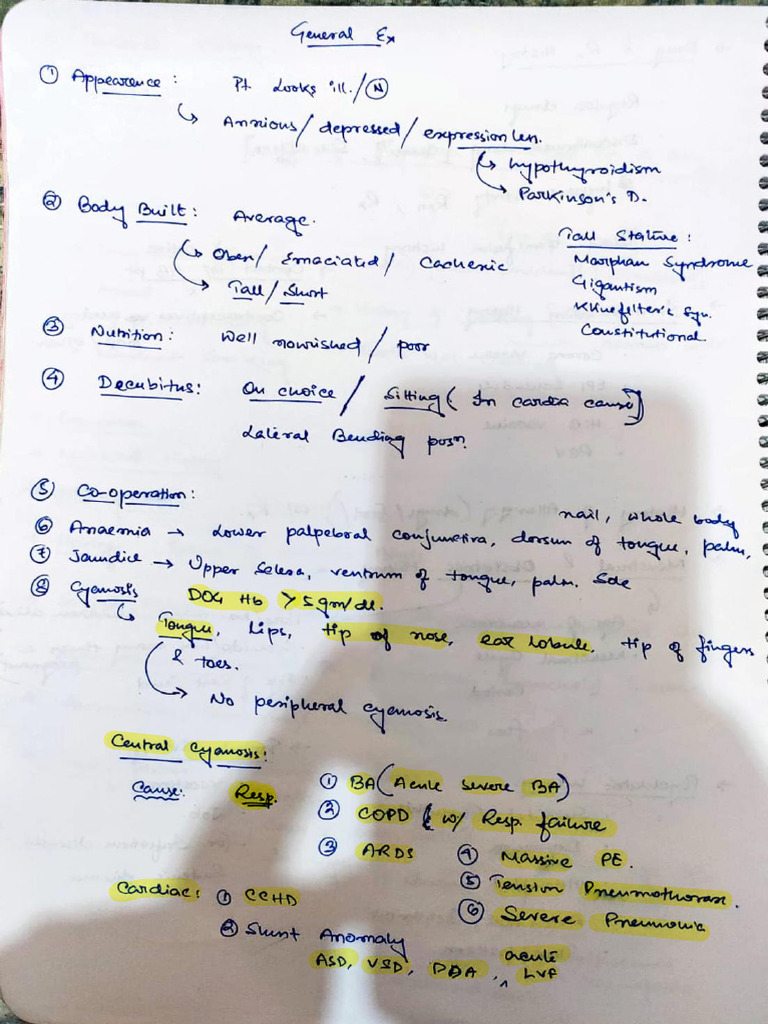 General Ex
① Appearence : Pt. Looks ill./Ⓝ
↳ Anxious / depressed / expression len.
↳ hypothyroidism
→ Parkinson's D.
② Body Built : Average.
↳ Obes/ Emaciated / Cachexic
→ Tall / Short
Tall Stature :
Marphan Syndrome
Gigantism
Klinefelter's Syn.
Constitutional
③ Nutrition : Well nourished / poor
④ Decubitus : On choice / Sitting ( In cardia cause)
Lateral Bending posn.
⑤ Co-operation :
⑥ Anaemia → Lower palpebral conjunctiva, dorsum of tongue, palm, nail, whole body
⑦ Jaundice → Upper Sclera, ventrum of tongue, palm. Sole
⑧ Cyanosis DOG Hb > 5 gm/dl.
↳ Tongue, Lips, tip of nose, ear lobule, tip of fingers
& toes.
→ No peripheral cyanosis.
Central Cyanosis :
Cause: Resp. ① BA (Acute severe BA)
② COPD w/ Resp. failure
③ ARDS ④ Massive PE.
⑤ Tension Pneumothorax.
⑥ Severe Pneumonia
Cardiac : ① CCHD
② Shunt Anomaly
ASD, VSD, PDA, acute LVF